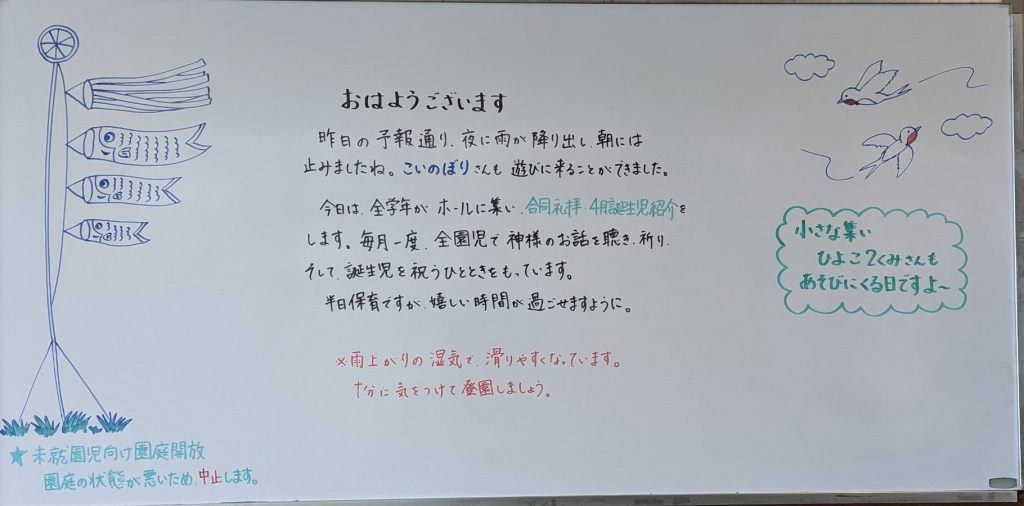 おはようございます
昨日の予報通り、夜に雨が降り出し、朝には
止みましたね。こいのぼりさんも遊びに来ることができました。
今日は、全学年がホールに集い、合同礼拝・4月誕生児紹介を
します。毎月一度、全園児で神様のお話を聴き、祈り、
そして、誕生児を祝うひとときをもっています。
半日保育ですが、嬉しい時間が過ごせますように。
※雨上がりの湿気で、滑りやすくなっています。
十分に気をつけて登園しましょう。
小さな集い
ひよこ2くみさんも
あそびにくる日ですよ〜
★未就園児向け園庭開放
園庭の状態が悪いため、中止します。